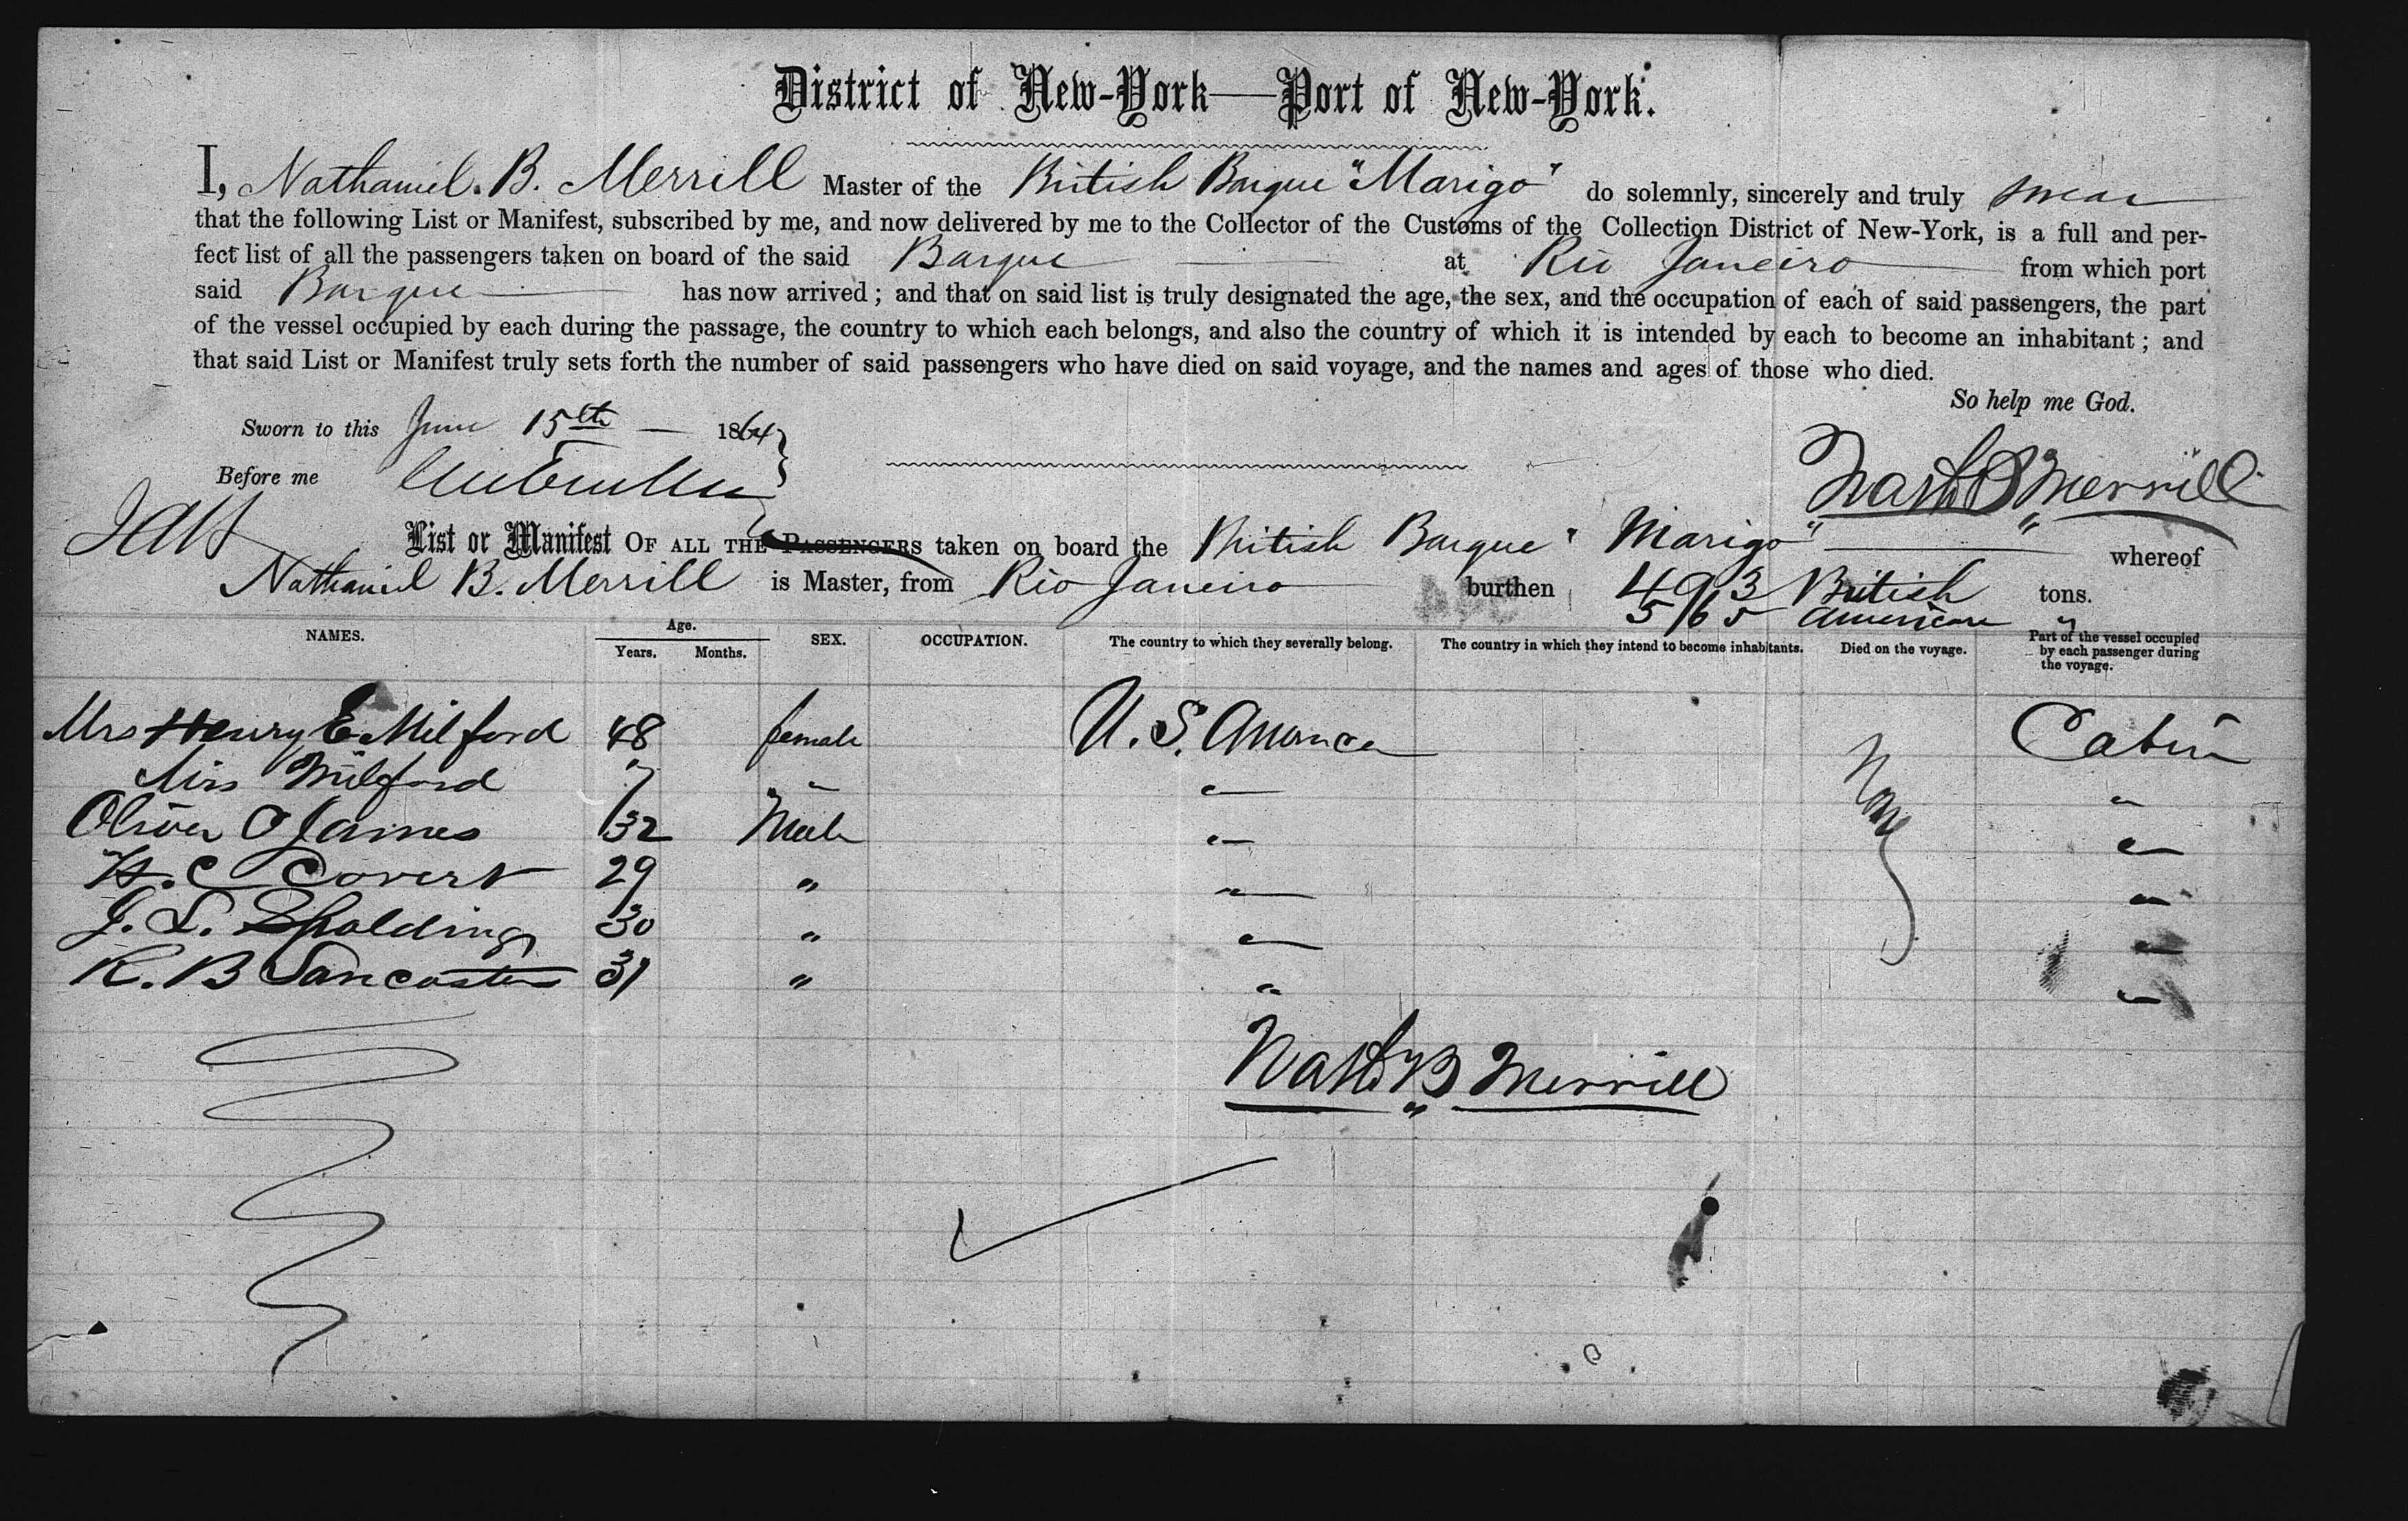 District of New-York—Port of New-York.
I, Nathaniel. B. Merrill Master of the British Barque "Marigo" do solemnly, sincerely and truly swear
that the following List or Manifest, subscribed by me, and now delivered by me to the Collector of the Customs of the Collection District of New-York, is a full and per-
fect list of all the passengers taken on board of the said Barque at Rio Janeiro from which port
said Barque has now arrived; and that on said list is truly designated the age, the sex, and the occupation of each of said passengers, the part
of the vessel occupied by each during the passage, the country to which each belongs, and also the country of which it is intended by each to become an inhabitant; and
that said List or Manifest truly sets forth the number of said passengers who have died on said voyage, and the names and ages of those who died.
So help me God.
Sworn to this June 15th — 1864
Before me
Nathl B Merrill
List or Manifest OF ALL THE PASSENGERS taken on board the British Barque "Marigo" whereof
Nathaniel B. Merrill is Master, from Rio Janeiro burthen 493 British tons.
565 American "
NAMES. Age. Years. Months. SEX. OCCUPATION. The country to which they severally belong. The country in which they intend to become inhabitants. Died on the voyage. Part of the vessel occupied by each passenger during the voyage.
Mrs Henry E Milford 48 female U. S. America Cabin
Miss Milford 7 " " "
Oliver O James 32 Male " "
H. C Covert 29 " " "
J. L. Spalding 30 " " "
R. B Lancaster 31 " " "
None
Nathl B Merrill